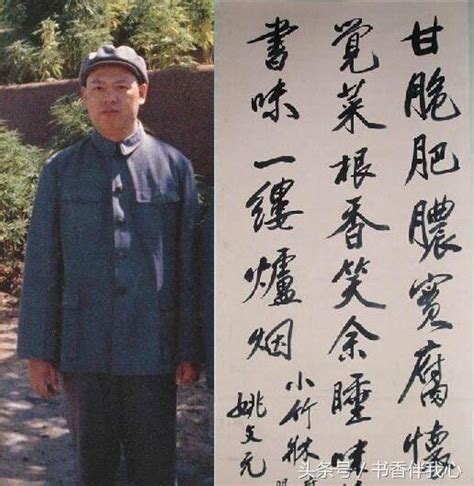 甘脆肥膿實腐懷
覺菜根香笑余睡
書味一縷爐烟
小竹牀
姚文元
头条号／书香伴我心